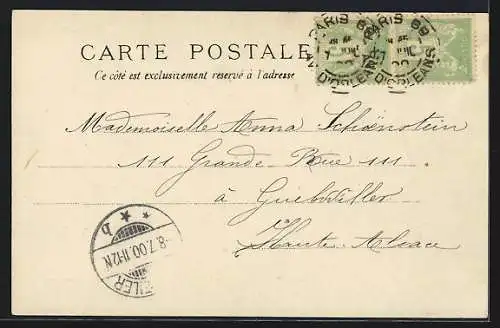 PARIS 68
AV. D'ORLEANS
PARIS 68
D'ORLEANS
CARTE POSTALE
Ce côté est exclusivement reservé à l'adresse
Mademoiselle Anna Schœnstein
111 Grande Rue 111
à Guebwiller
Haute-Alsace
b
-8.7.00.11-12N
EILER